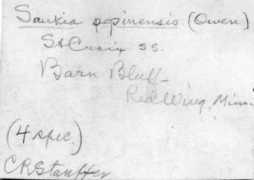 Saukia pepinensis (Owen)
St Croix ss.
Barn Bluff
Red Wing, Minn
(4 spec.)
CRStauffer